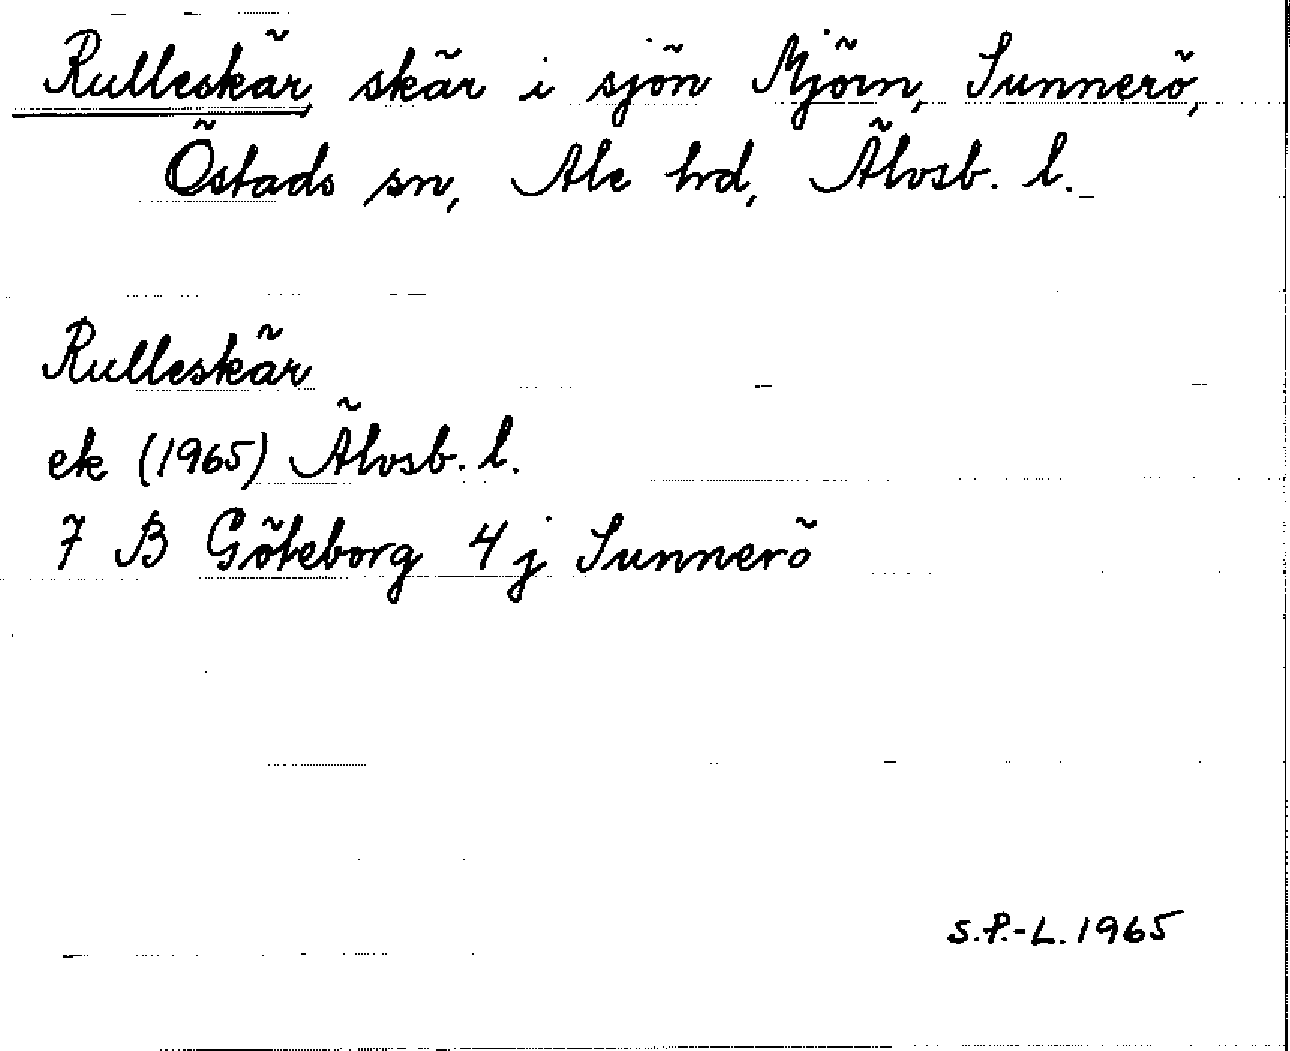 Rulleskär, skär i sjön Mjörn, Sunnerö,
Östads sn, Ale hd, Älvsb. l.
Rulleskär
ek (1965) Älvsb. l.
7 B Göteborg 4 j Sunnerö
S.P.-L. 1965